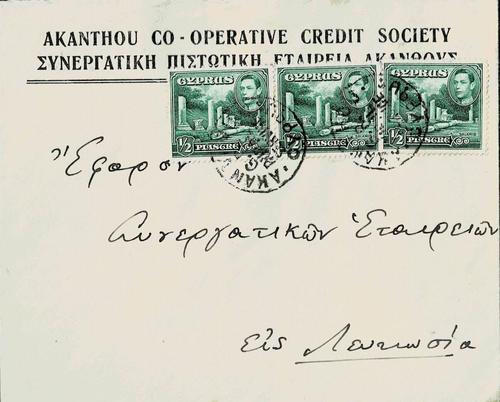 AKANTHOU CO-OPERATIVE CREDIT SOCIETY
ΣΥΝΕΡΓΑΤΙΚΗ ΠΙΣΤΩΤΙΚΗ ΕΤΑΙΡΕΙΑ ΑΚΑΝΘΟΥΣ
CYPRUS CYPRUS CYPRUS
1/2 PIASTRE 1/2 PIASTRE 1/2 PIASTRE
AKANTHOU
Ἔφορον
Συνεργατικῶν Ἑταιρειῶν
Εἰς Λευκωσία